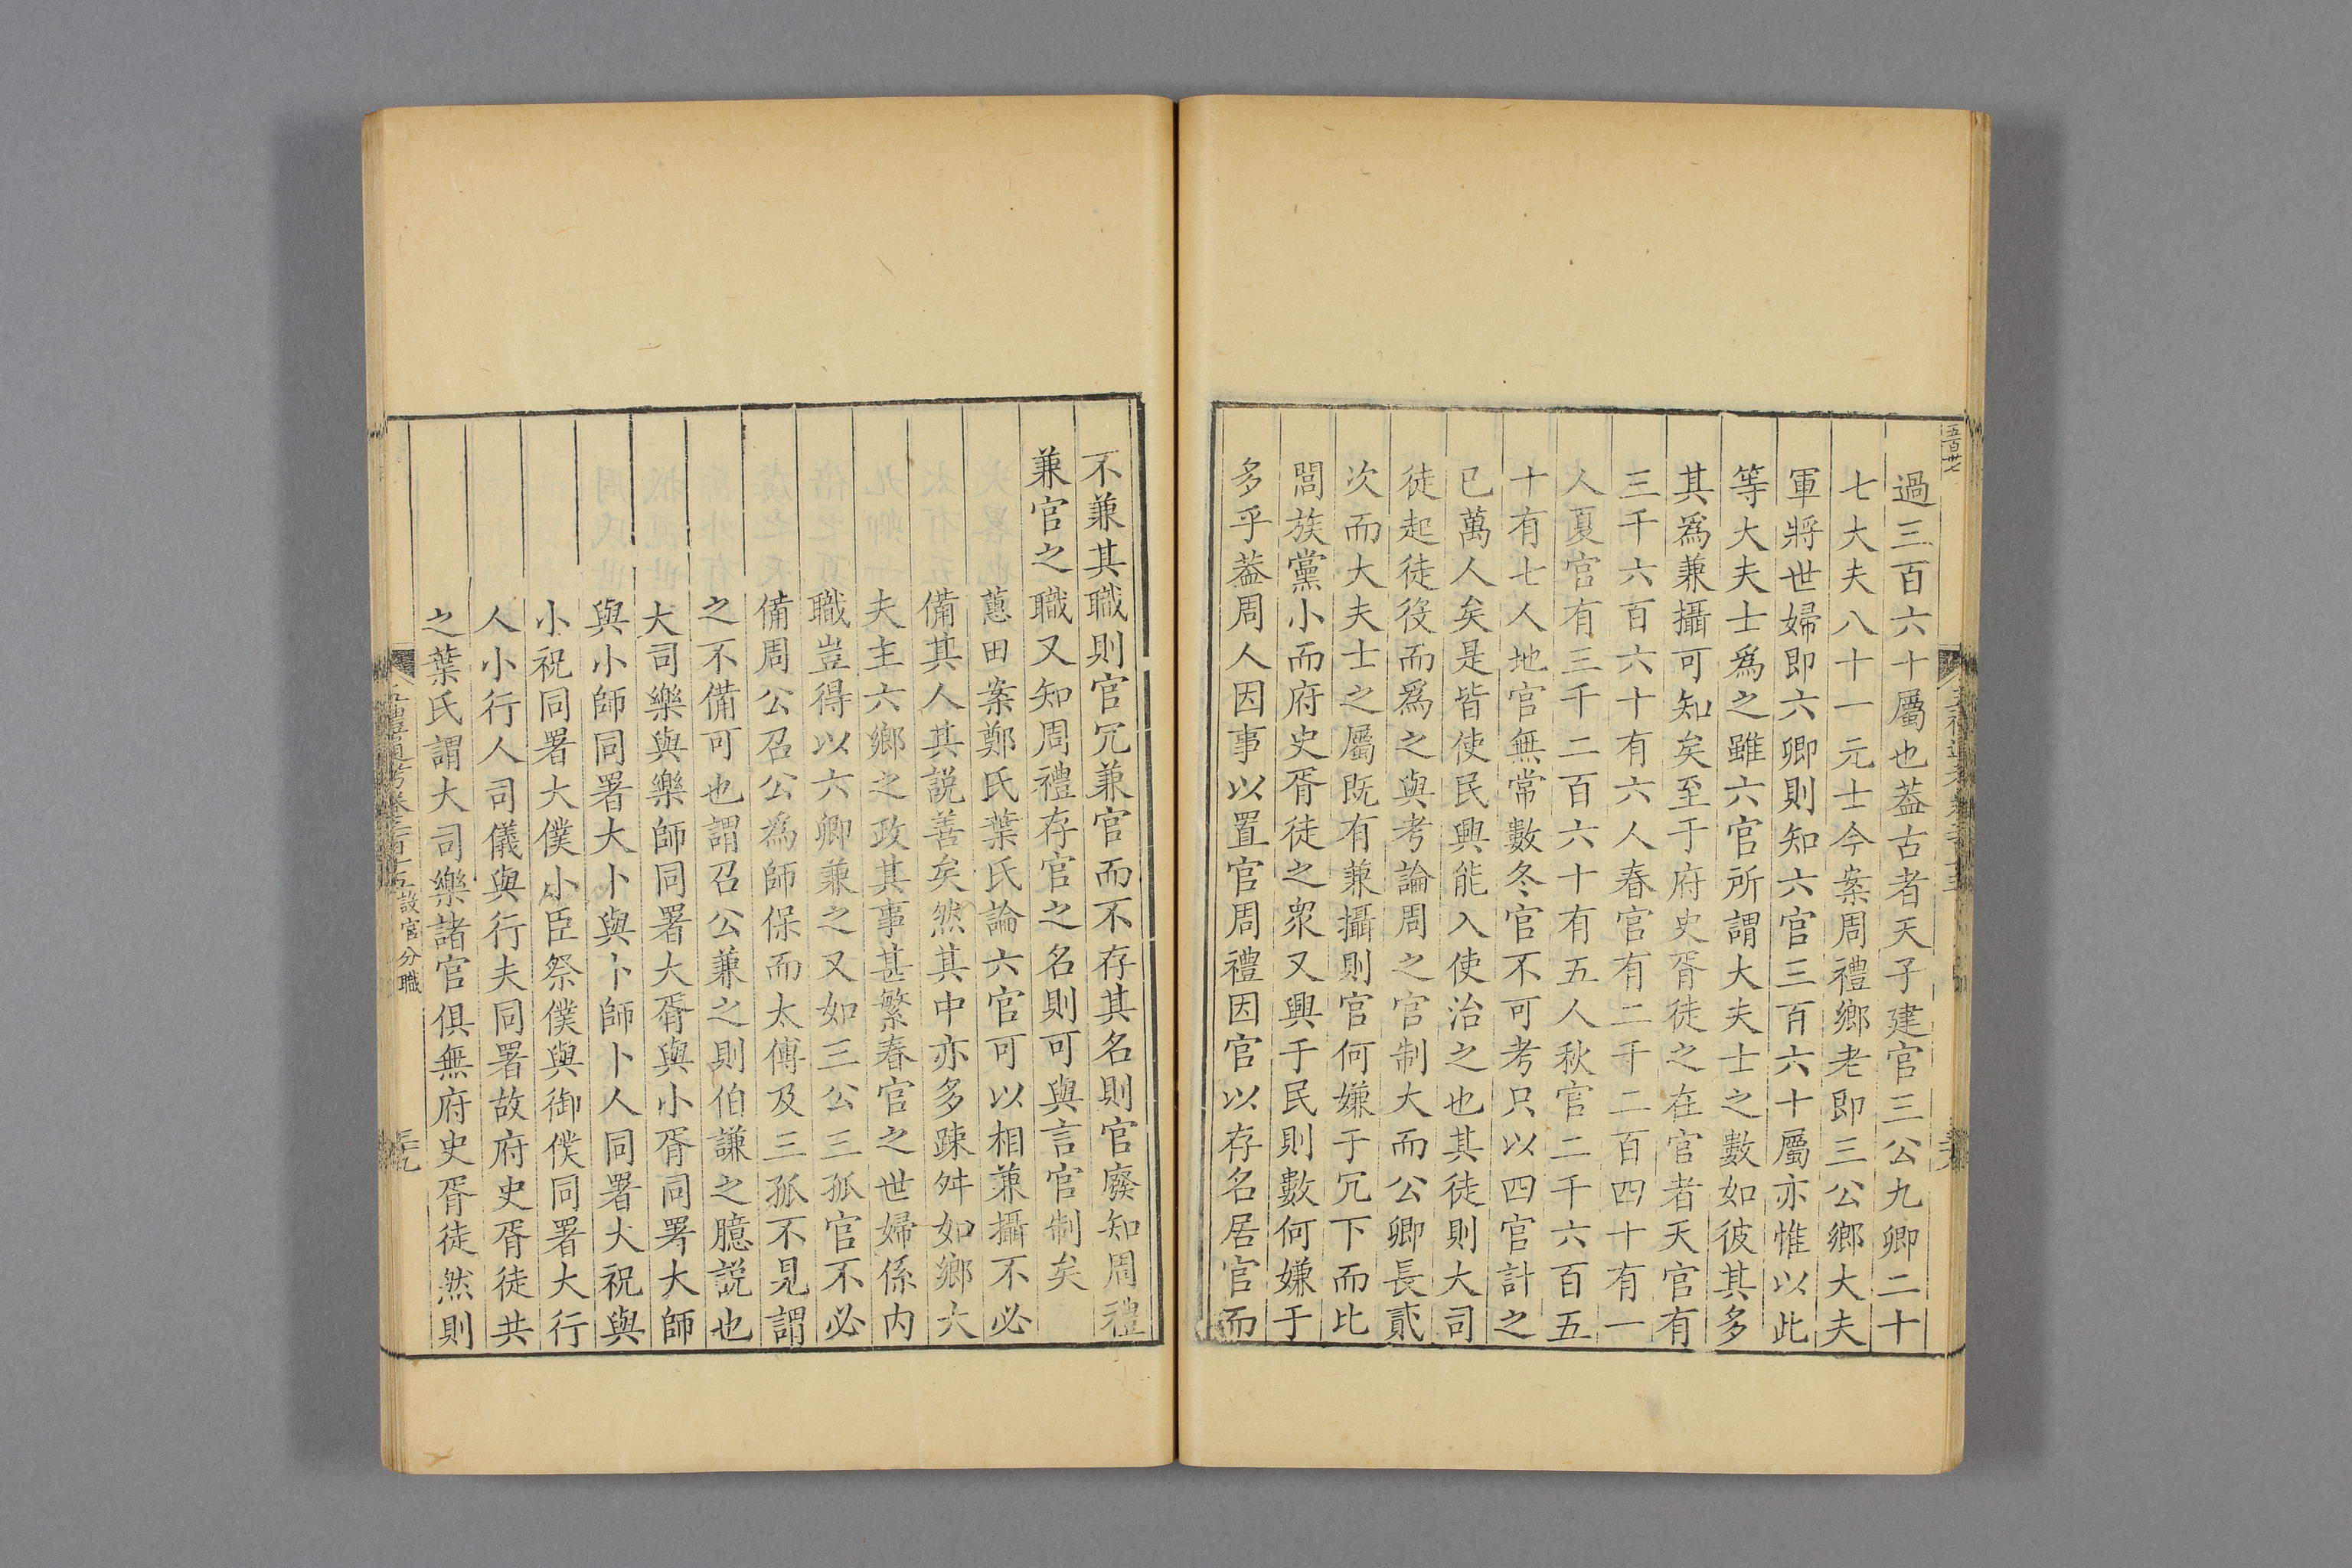 五百卅七
過三百六十屬也葢古者天子建官三公九卿二十
七大夫八十一元士今案周禮鄉老即三公鄉大夫
軍將世婦即六卿則知六官三百六十屬亦惟以此
等大夫士爲之雖六官所謂大夫士之數如彼其多
其爲兼攝可知矣至于府史胥徒之在官者天官有
三千六百六十有六人春官有二千二百四十有一
人夏官有三千二百六十有五人秋官二千六百五
十有七人地官無常數冬官不可考只以四官計之
已萬人矣是皆使民興能入使治之也其徒則大司
徒起徒役而爲之與考論周之官制大而公卿長貳
次而大夫士之屬既有兼攝則官何嫌于冗下而比
閭族黨小而府史胥徒之衆又興于民則數何嫌于
多乎葢周人因事以置官周禮因官以存名居官而
不兼其職則官冗兼官而不存其名則官廢知周禮
兼官之職又知周禮存官之名則可與言官制矣
蕙田案鄭氏葉氏論六官可以相兼攝不必
備其人其説善矣然其中亦多踈舛如鄉大
夫主六鄉之政其事甚繁春官之世婦係内
職豈得以六卿兼之又如三公三孤官不必
備周公召公爲師保而太傅及三孤不見謂
之不備可也謂召公兼之則伯謙之臆説也
大司樂與樂師同署大胥與小胥同署大師
與小師同署大卜與卜師卜人同署大祝與
小祝同署大僕小臣祭僕與御僕同署大行
人小行人司儀與行夫同署故府史胥徒共
之葉氏謂大司樂諸官俱無府史胥徒然則
五禮通考卷二百十五 設官分職